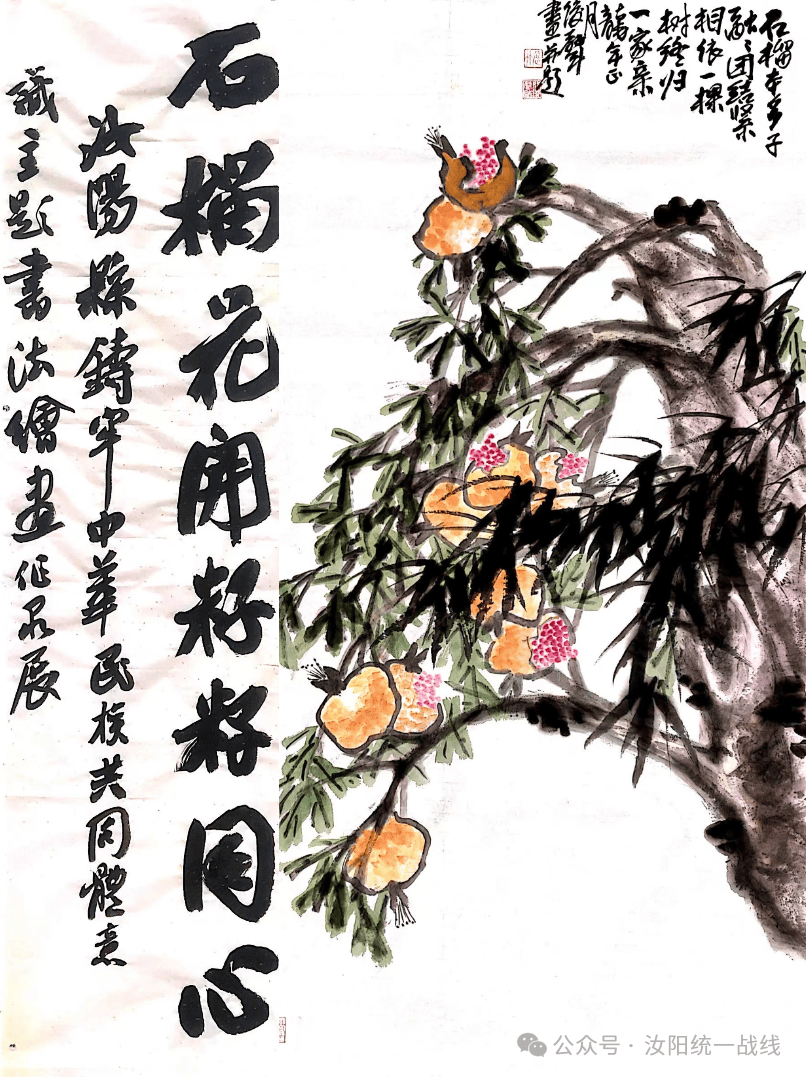 石榴本多子
团結紧
相依一棵
树
一家亲
龍年正
月
畫并题
石榴花開籽籽同心
汝陽縣鑄牢中華民族共同體意
識主题書法繪畫作品展
公众号 · 汝阳统一战线